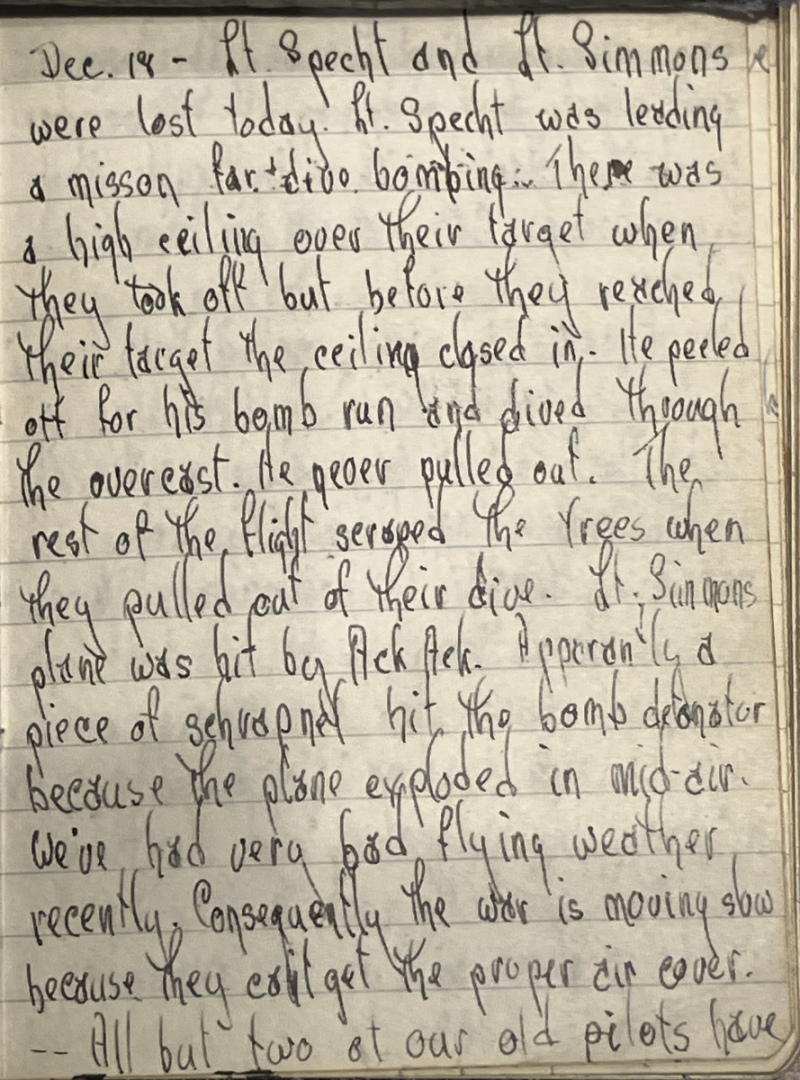 Dec. 18 - Lt. Specht and Lt. Simmons
were lost today. Lt. Specht was leading
a misson for dive bombing. There was
a high ceiling over their target when
they took off but before they reached
their target the ceiling closed in. He peeled
off for his bomb run and dived through
the overcast. He never pulled out. The
rest of the flight scraped the trees when
they pulled out of their dive. Lt. Simmons
plane was hit by Ack Ack. Apparantly a
piece of schrapnel hit the bomb detonator
because the plane exploded in mid-air.
We've had very bad flying weather
recently. Consequently the war is moving slow
because they can't get the proper air cover.
-- All but two of our old pilots have